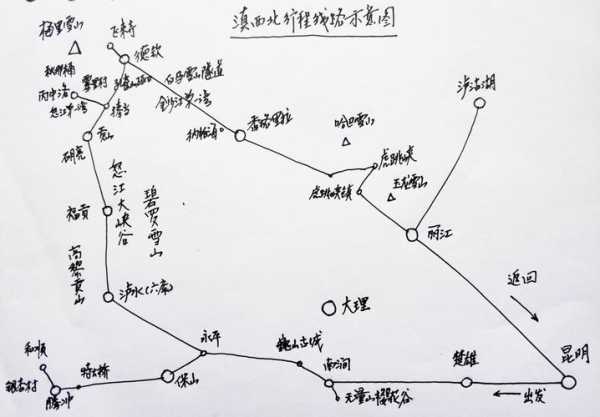 滇西北行程线路示意图
梅里雪山
飞来寺
德钦
白马雪山隧道
金沙江第一湾
秋那桶
雾里村
孔雀山垭口
丙中洛
怒江第一湾
捧当
贡山
纳帕海
香格里拉
哈巴雪山
泸沽湖
虎跳峡
虎跳峡镇
玉龙雪山
丽江
怒江大峡谷
碧罗雪山
福贡
高黎贡山
泸水(六库)
大理
返回
永平
巍山古城
南涧
无量山樱花谷
楚雄
昆明
出发
和顺
银杏村
腾冲
特大桥
保山